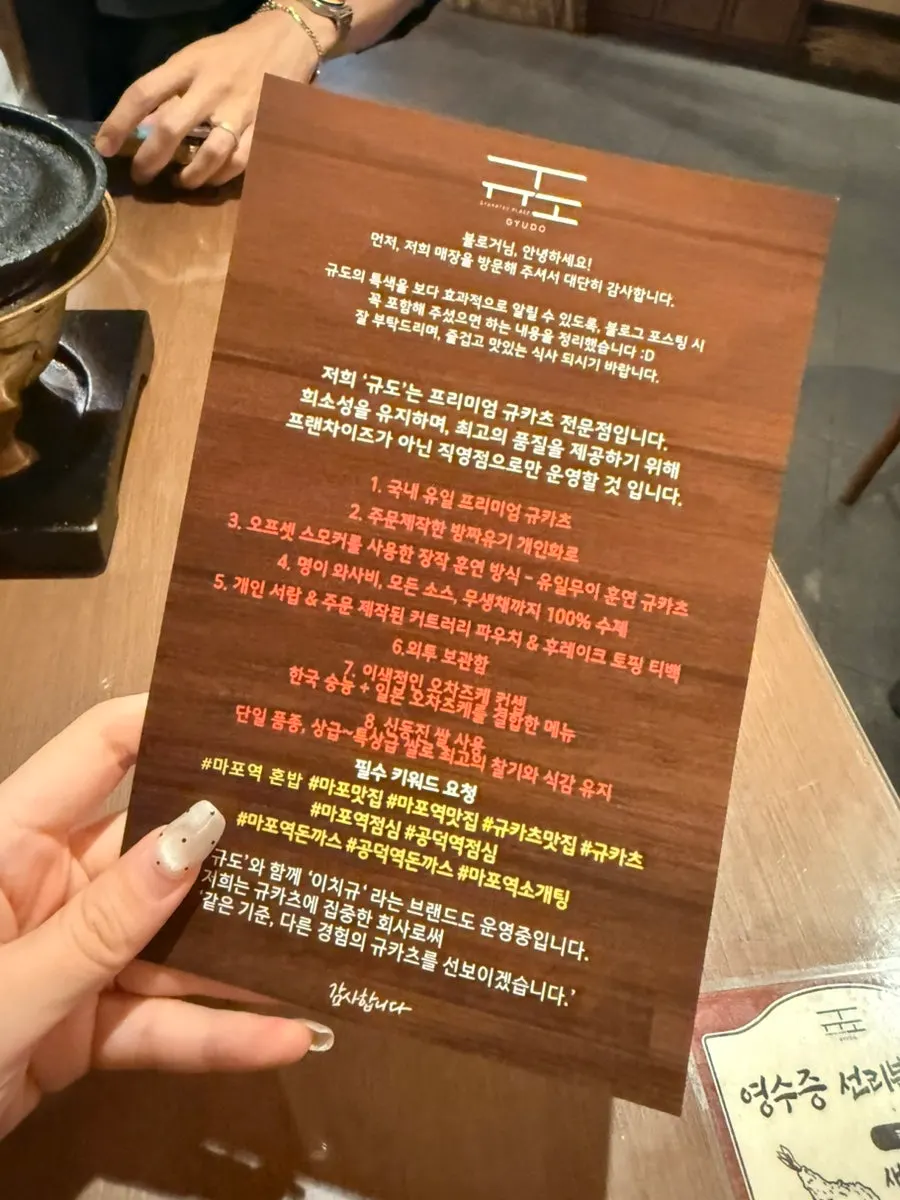 규도
GYUKATSU PLACE
GYUDO
블로거님, 안녕하세요!
먼저, 저희 매장을 방문해 주셔서 대단히 감사합니다.
규도의 특색을 보다 효과적으로 알릴 수 있도록, 블로그 포스팅 시
꼭 포함해 주셨으면 하는 내용을 정리했습니다 :D
잘 부탁드리며, 즐겁고 맛있는 식사 되시기 바랍니다.
저희 ‘규도’는 프리미엄 규카츠 전문점입니다.
희소성을 유지하며, 최고의 품질을 제공하기 위해
프랜차이즈가 아닌 직영점으로만 운영할 것 입니다.
1. 국내 유일 프리미엄 규카츠
2. 주문제작한 방짜유기 개인화로
3. 오프셋 스모커를 사용한 장작 훈연 방식 - 유일무이 훈연 규카츠
4. 명이 와사비, 모든 소스, 무생채까지 100% 수제
5. 개인 서랍 & 주문 제작된 커트러리 파우치 & 후레이크 토핑 티백
6.외투 보관함
7. 이색적인 오차즈케 컨셉
한국 숭늉 + 일본 오차즈케를 결합한 메뉴
8. 신동진 쌀 사용
단일 품종, 상급~특상급 쌀로 최고의 찰기와 식감 유지
필수 키워드 요청
#마포역 혼밥 #마포맛집 #마포역맛집 #규카츠맛집 #규카츠
#마포역점심 #공덕역점심
#마포역돈까스 #공덕역돈까스 #마포역소개팅
규도’와 함께 ‘이치규‘ 라는 브랜드도 운영중입니다.
저희는 규카츠에 집중한 회사로써
‘같은 기준, 다른 경험의 규카츠를 선보이겠습니다.’
감사합니다
규도
영수증